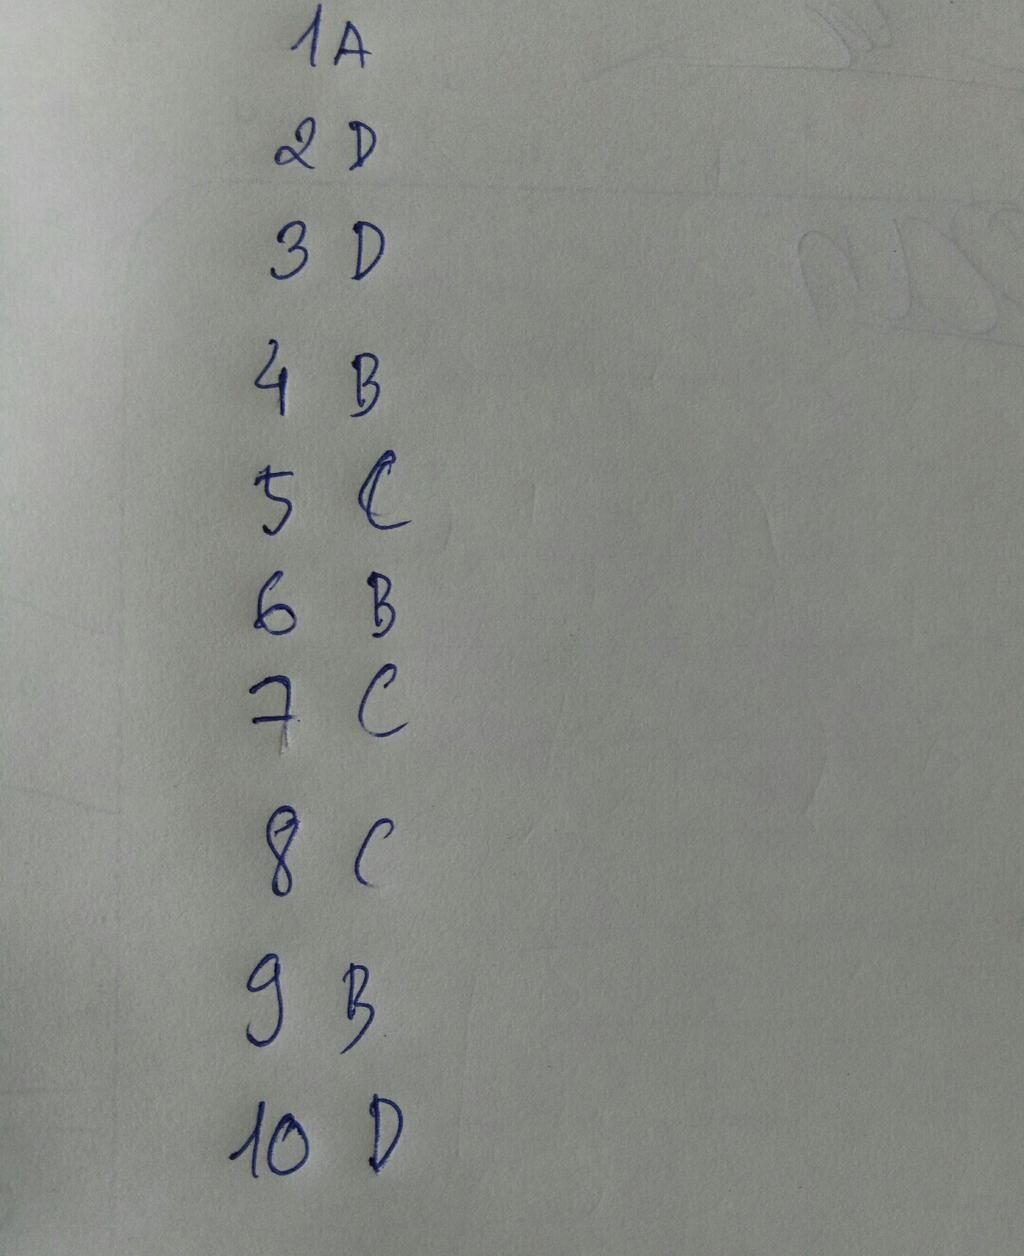 1 A
2 D
3 D
4 B
5 C
6 B
7 C
8 C
9 B
10 D